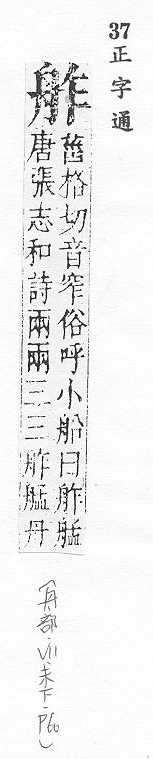 37 正字通
舴
舊格切音窄俗呼小船曰舴艋
唐張志和詩兩兩三三舴艋舟
(舟部.VII.未下.P60)